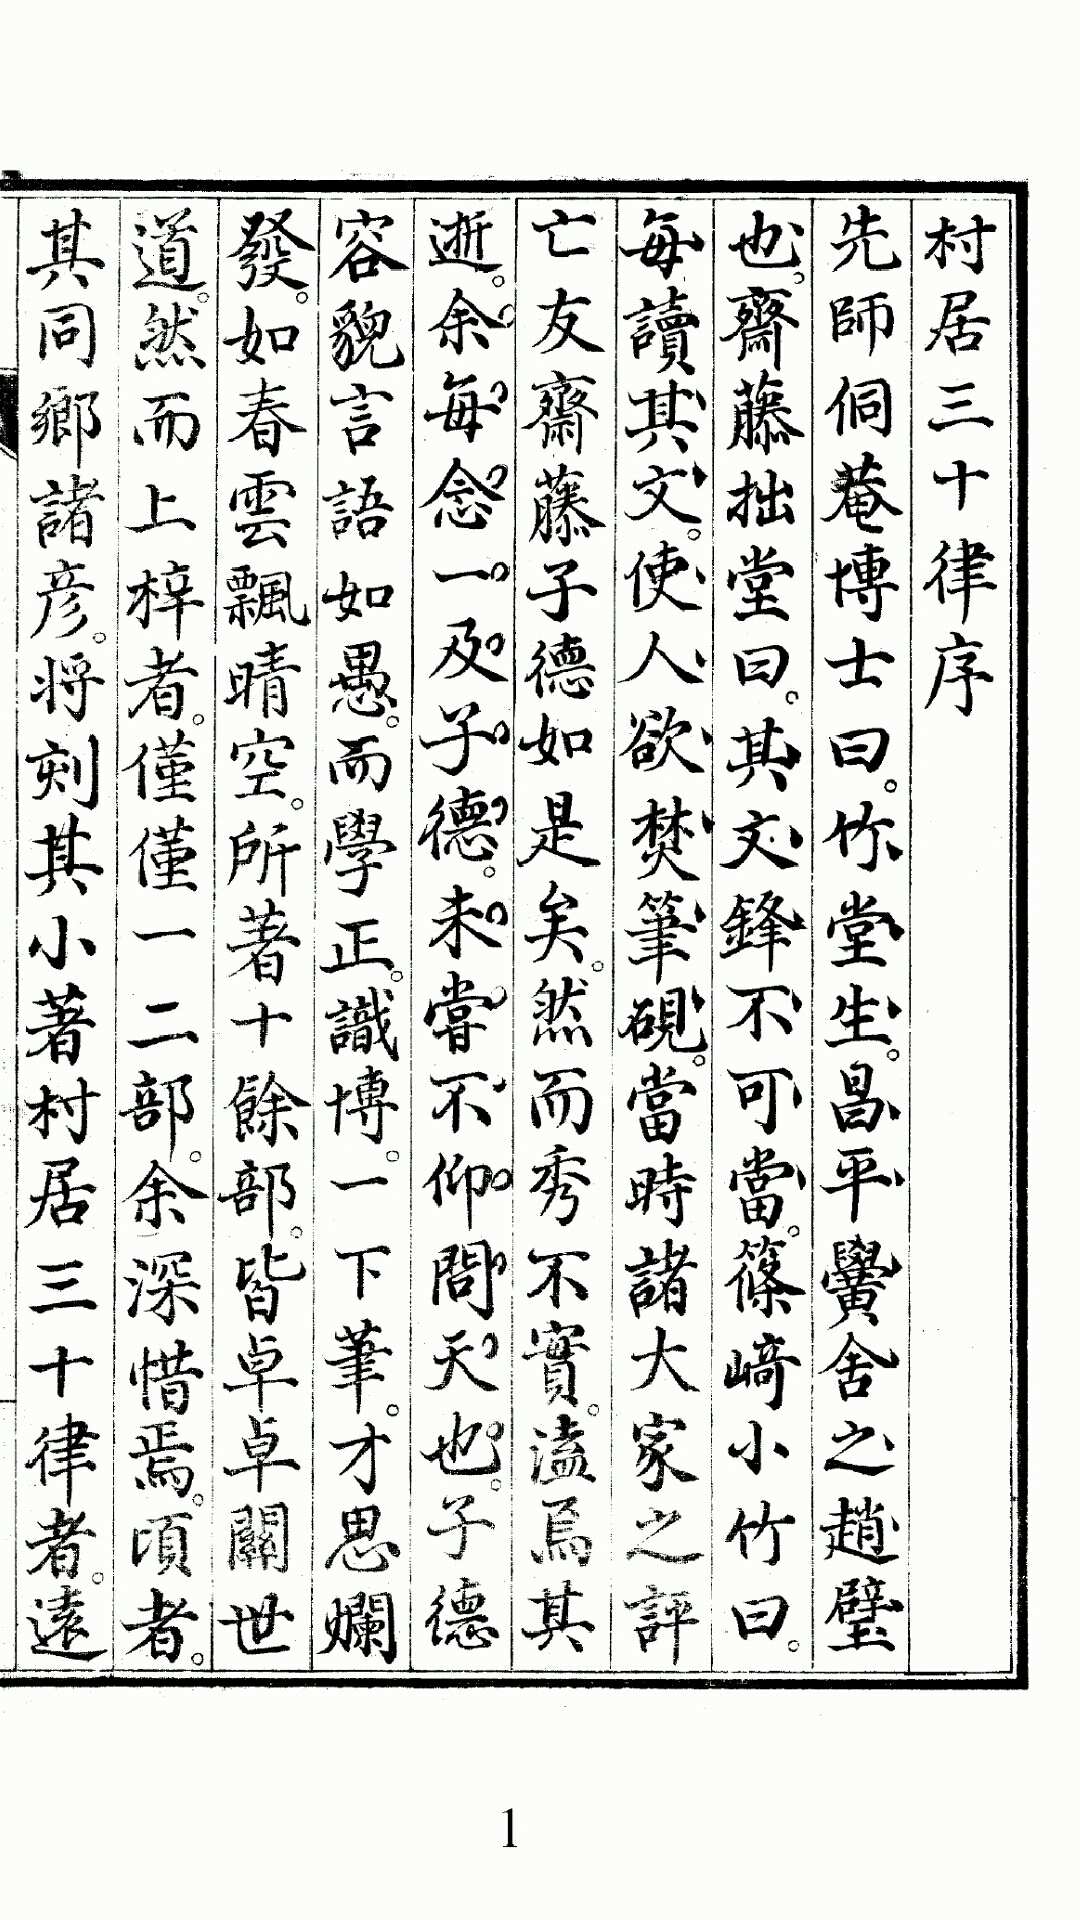 村居三十律序
先師侗菴博士曰。竹堂生。昌平黌舍之趙璧
也。齋藤拙堂曰。其文鋒不可當。篠﨑小竹曰。
每讀其文。使人欲焚筆硯。當時諸大家之評
亡友齋藤子德如是矣。然而秀不實。溘焉其
逝。余每念一及子德。未嘗不仰問天也。子德
容貌言語如愚。而學正。識博。一下筆。才思爛
發。如春雲飄晴空。所著十餘部。皆卓卓關世
道。然而上梓者。僅僅一二部。余深惜焉。頃者。
其同鄉諸彥。将刻其小著村居三十律者。遠
1